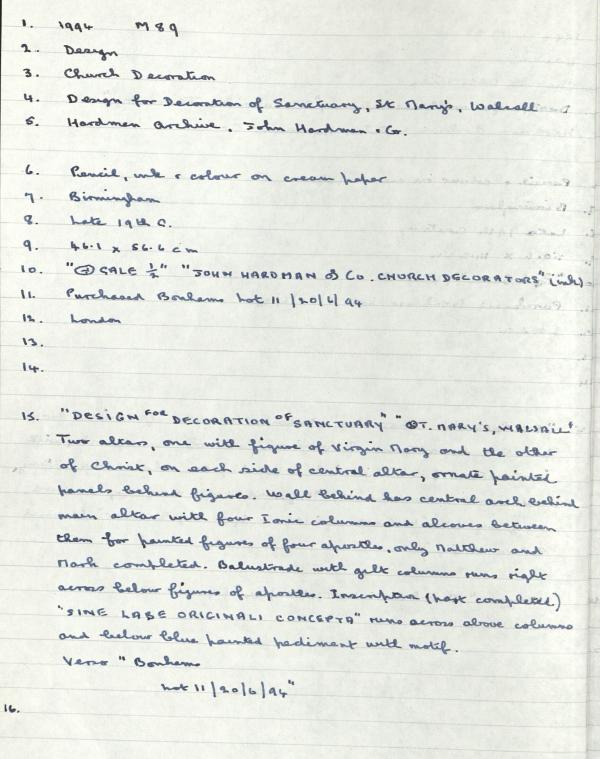 1. 1994 M 89
2. Design
3. Church Decoration
4. Design for Decoration of Sanctuary, St Mary's, Walsall
5. Hardman Archive. John Hardman & Co.
6. Pencil, ink & colour on cream paper
7. Birmingham
8. Late 19th C.
9. 46.1 x 56.6 cm
10. "SCALE ½" "JOHN HARDMAN & CO. CHURCH DECORATORS" (ink)
11. Purchased Bonhams Lot 11 /20/6/94
12. London
13.
14.
15. "DESIGN FOR DECORATION OF SANCTUARY" "ST. MARY'S, WALSALL"
Two altars, one with figure of Virgin Mary and the other
of Christ, on each side of central altar, ornate painted
panels behind figures. Wall behind has central arch behind
main altar with four Ionic columns and alcoves between
them for painted figures of four apostles, only Matthew and
Mark completed. Balustrade with gilt columns runs right
across below figures of apostles. Inscription (part completed)
"SINE LABE ORIGINALI CONCEPTA" runs across above columns
and below blue painted pediment with motif.
Verso "Bonhams
Lot 11/20/6/94"
16.